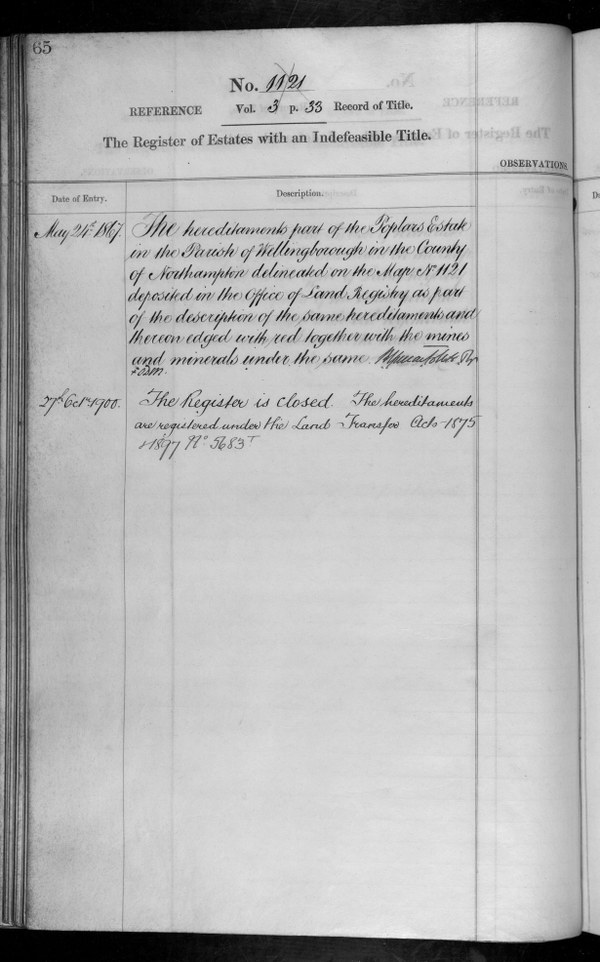 65
No. 1121
REFERENCE Vol. 3 p. 33 Record of Title.
The Register of Estates with an Indefeasible Title.
OBSERVATIONS.
Date of Entry. Description.
May 24th 1867. The hereditaments part of the Poplars Estate
in the Parish of Wellingborough in the County
of Northampton delineated on the Map No 1121
deposited in the Office of Land Registry as part
of the description of the same hereditaments and
thereon edged with red together with the mines
and minerals under the same
27th Octr 1900. The Register is closed. The hereditaments
are registered under the Land Transfer Acts 1875
& 1897 No 5683